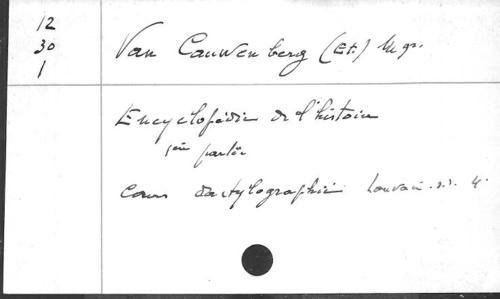 12
30
1
Van Cauwenberg (Et.) Mgr.
Encyclopédie de l'histoire
1ère partie
Cours dactylographié Louvain. s.d. 4°